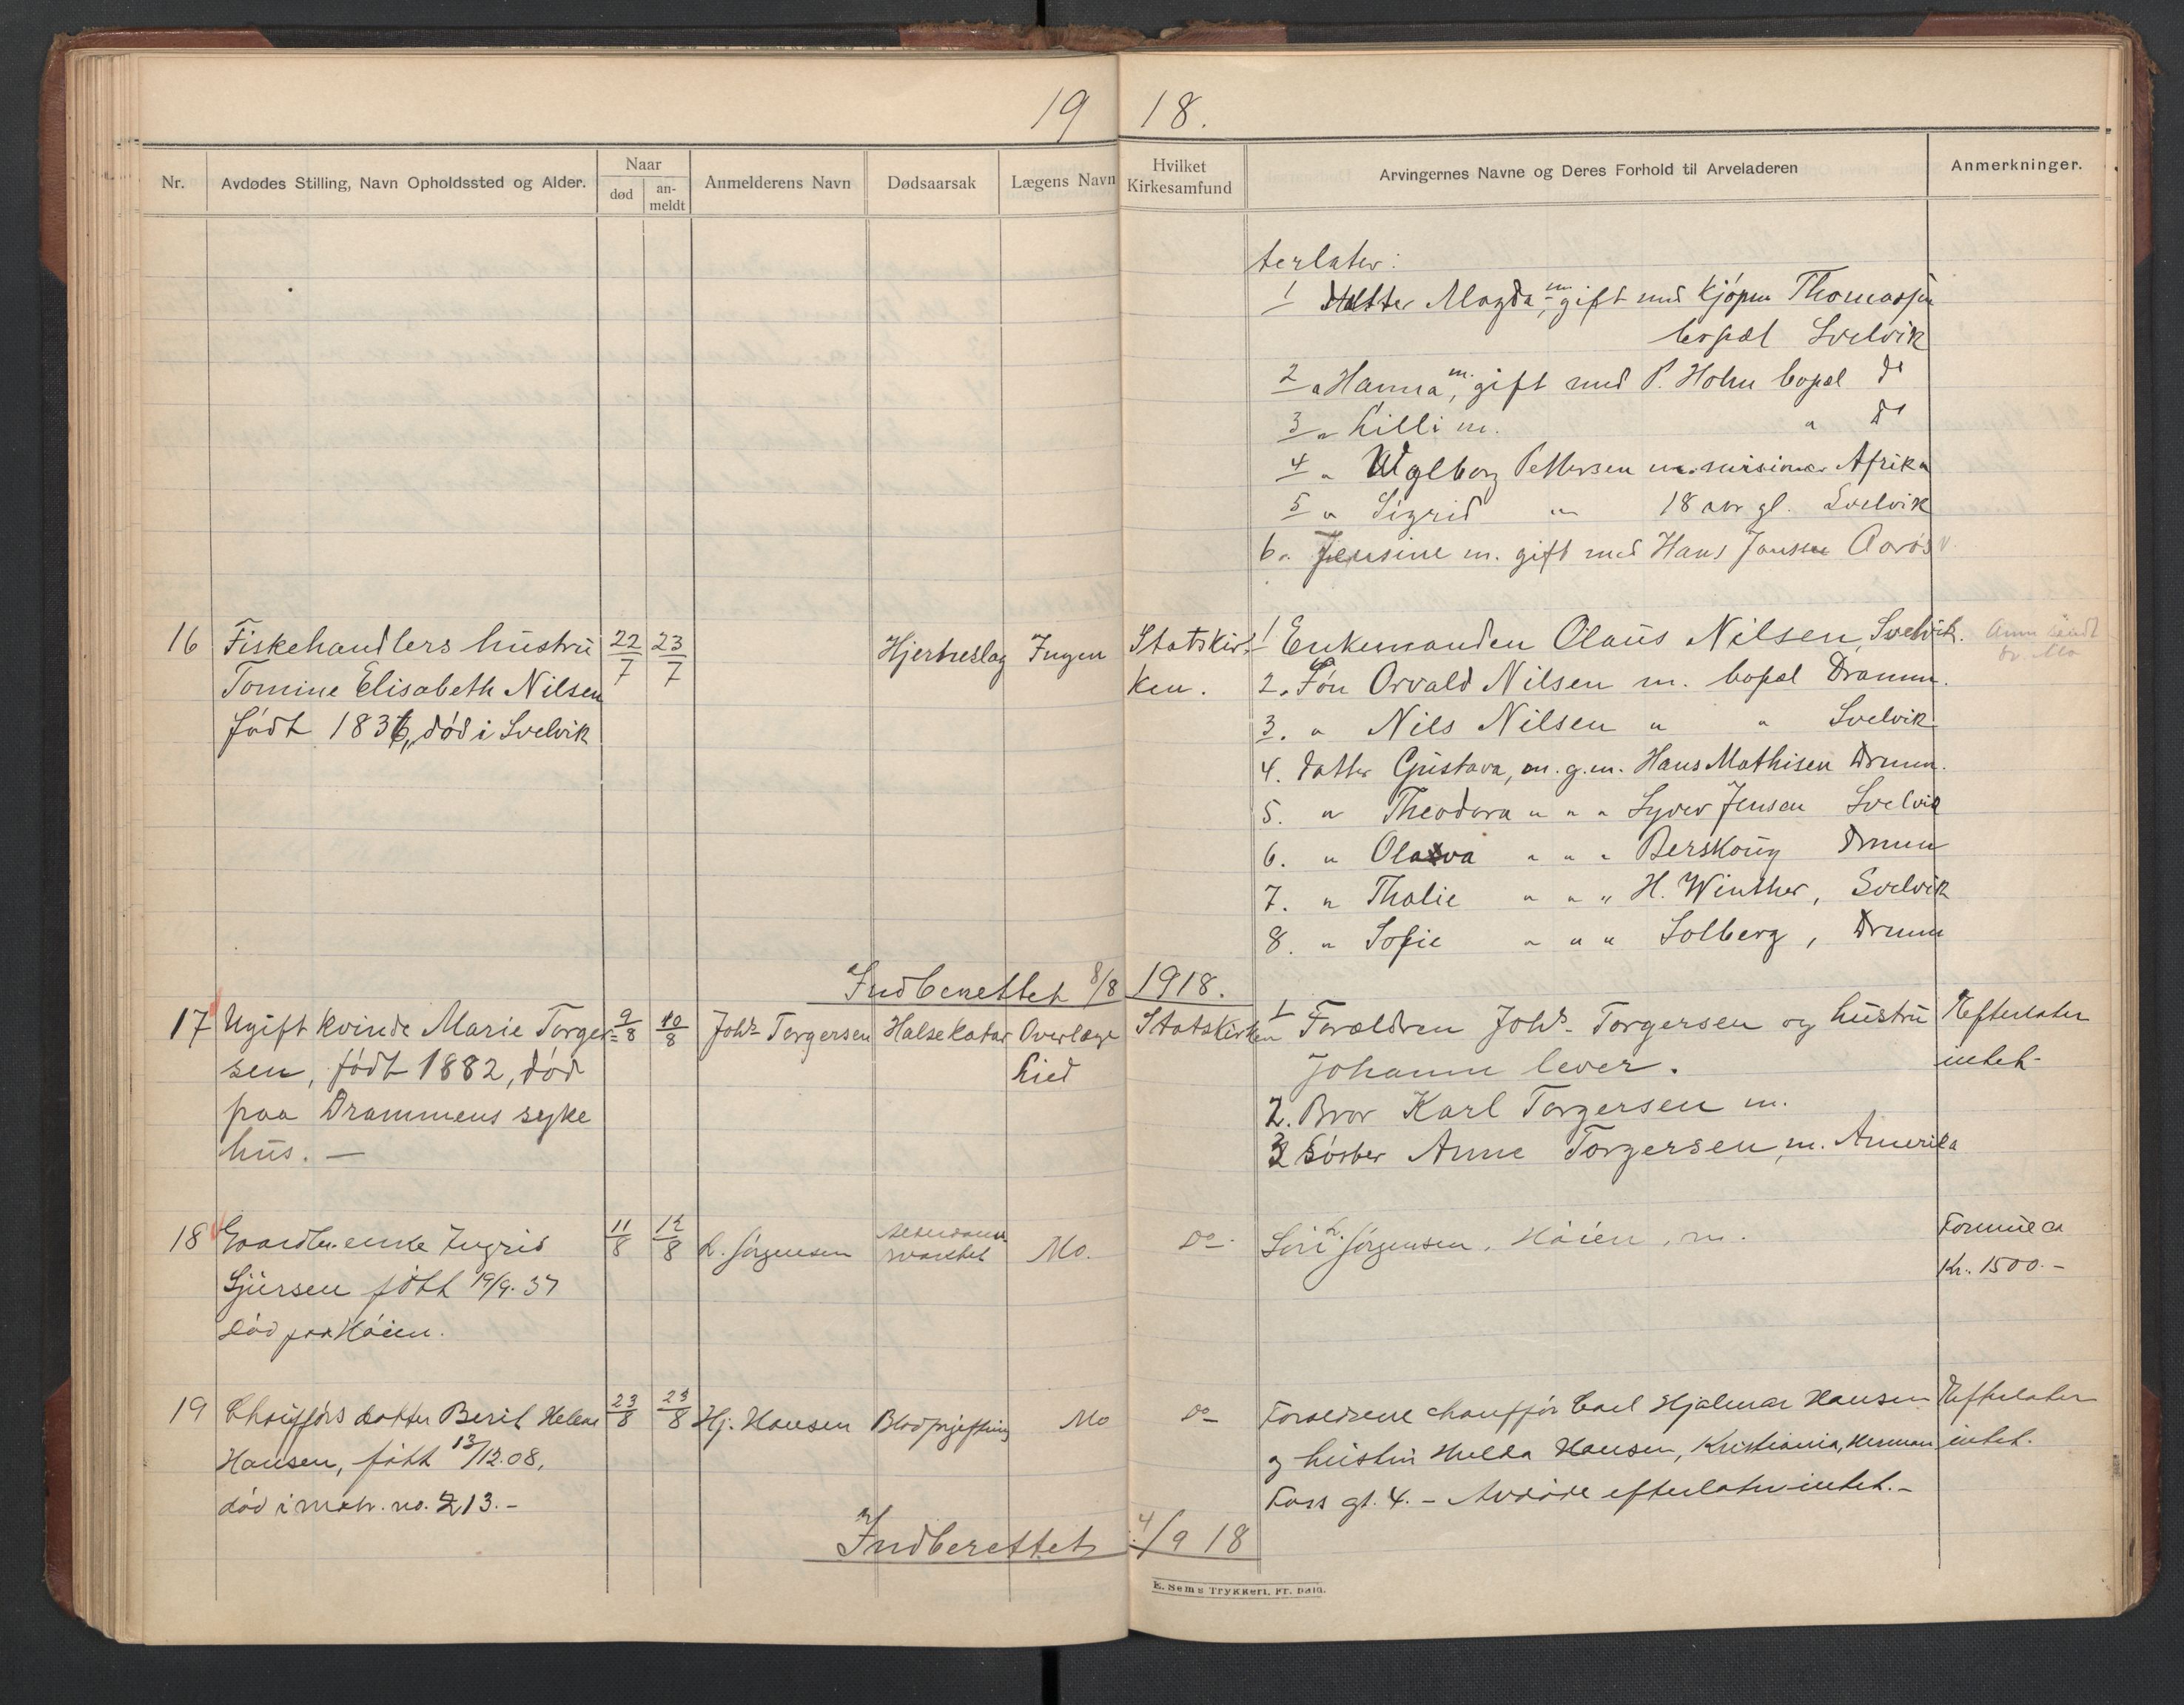 19 18.
Nr. Avdødes Stilling, Navn Opholdssted og Alder. Naar død an-meldt Anmelderens Navn Dødsaarsak Lægens Navn Hvilket Kirkesamfund Arvingernes Navne og Deres Forhold til Arveladeren Anmerkninger.
terlater:
1 Datter Magda, m. gift med Kjøpm Thomassen
bopæl Svelvik
2 " Hanna, m. gift med P. Holm bopæl do
3 " Lilli m. " do
4 " Valborg Pettersen m. Afrika
5 " Sigrid " 18 aar gl. Svelvik
6 " Jensine m. gift med Hans Jansen Aarøs
16 Fiskehandlers hustru 22/7 23/7 Hjerteslag Ingen Statskir- 1 Enkemanden Olaus Nilsen, Svelvik.
Tomine Elisabeth Nilsen ken. 2. Søn Orvald Nilsen m. bopæl Dramm.
født 1836, død i Svelvik 3. " Nils Nilsen " " Svelvik
4. datter Gustava, m. g. m. Hans Mathisen Drmm.
5. " Theodora " " " Syver Jensen Svelvik
6. " Olava " " " Berskoug Drmm
7. " Thalie " " " H. Winther, Svelvik
8. " Sofie " " " Solberg, Drmm
Indberettet 8/8 1918.
17 Ugift kvinde Marie Torger= 9/8 10/8 Johs Torgersen Halsekatar Overlæge Statskirken 1 Forældren Johs. Torgersen og hustru Efterlater
sen, født 1882, død Lied Johanne lever. intet-
paa Drammens syke 2. Bror Karl Torgersen m.
hus. — 3 Søster Anne Torgersen, m. Amerika
18 Gaardbr. enke Ingrid 11/8 12/8 L. Jørgensen Mo. Do. L. Jørgensen, Høien, m. Formue ca
Sjursen født 19/9.37 Kr. 1500.-
død paa Høien.
19 Chaufførs datter Berit Helene 23/8 23/8 Hj. Hansen Blodforgiftning Mo Do Forældrene chauffør Carl Hjalmar Hansen Efterlater
Hansen, født 13/12.08, og hustru Hulda Hansen, Kristiania, Herman intet.
død i matr. no. 213.- Foss gt. 4. - Avdøde efterlater intet.-
Indberettet 4/9 18
E. Sem's Trykkeri, Fr.hald.